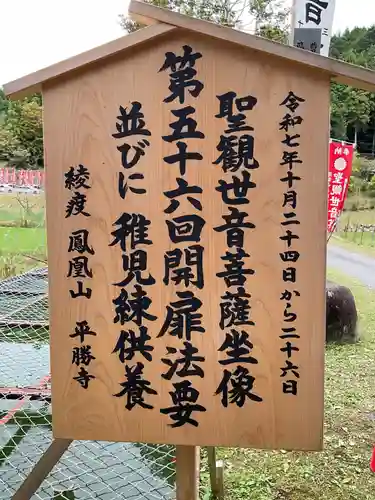 令和七年十月二十四日から二十六日
聖観世音菩薩坐像
第五十六回開扉法要
並びに稚児練供養
綾疫 鳳凰山 平勝寺
奉納
聖観世音